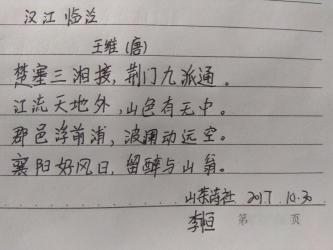 汉江临泛
王维（唐）
楚塞三湘接，荆门九派通。
江流天地外，山色有无中。
郡邑浮前浦，波澜动远空。
襄阳好风日，留醉与山翁。
山荣诗社 2017.10.30
李恒 第 页